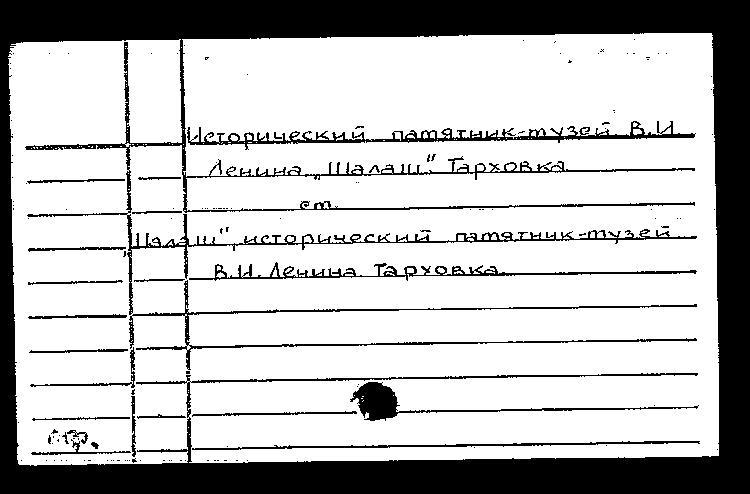 Исторический памятник-музей В.И.
Ленина „Шалаш". Тарховка
см.
„Шалаш", исторический памятник-музей
В.И. Ленина. Тарховка.